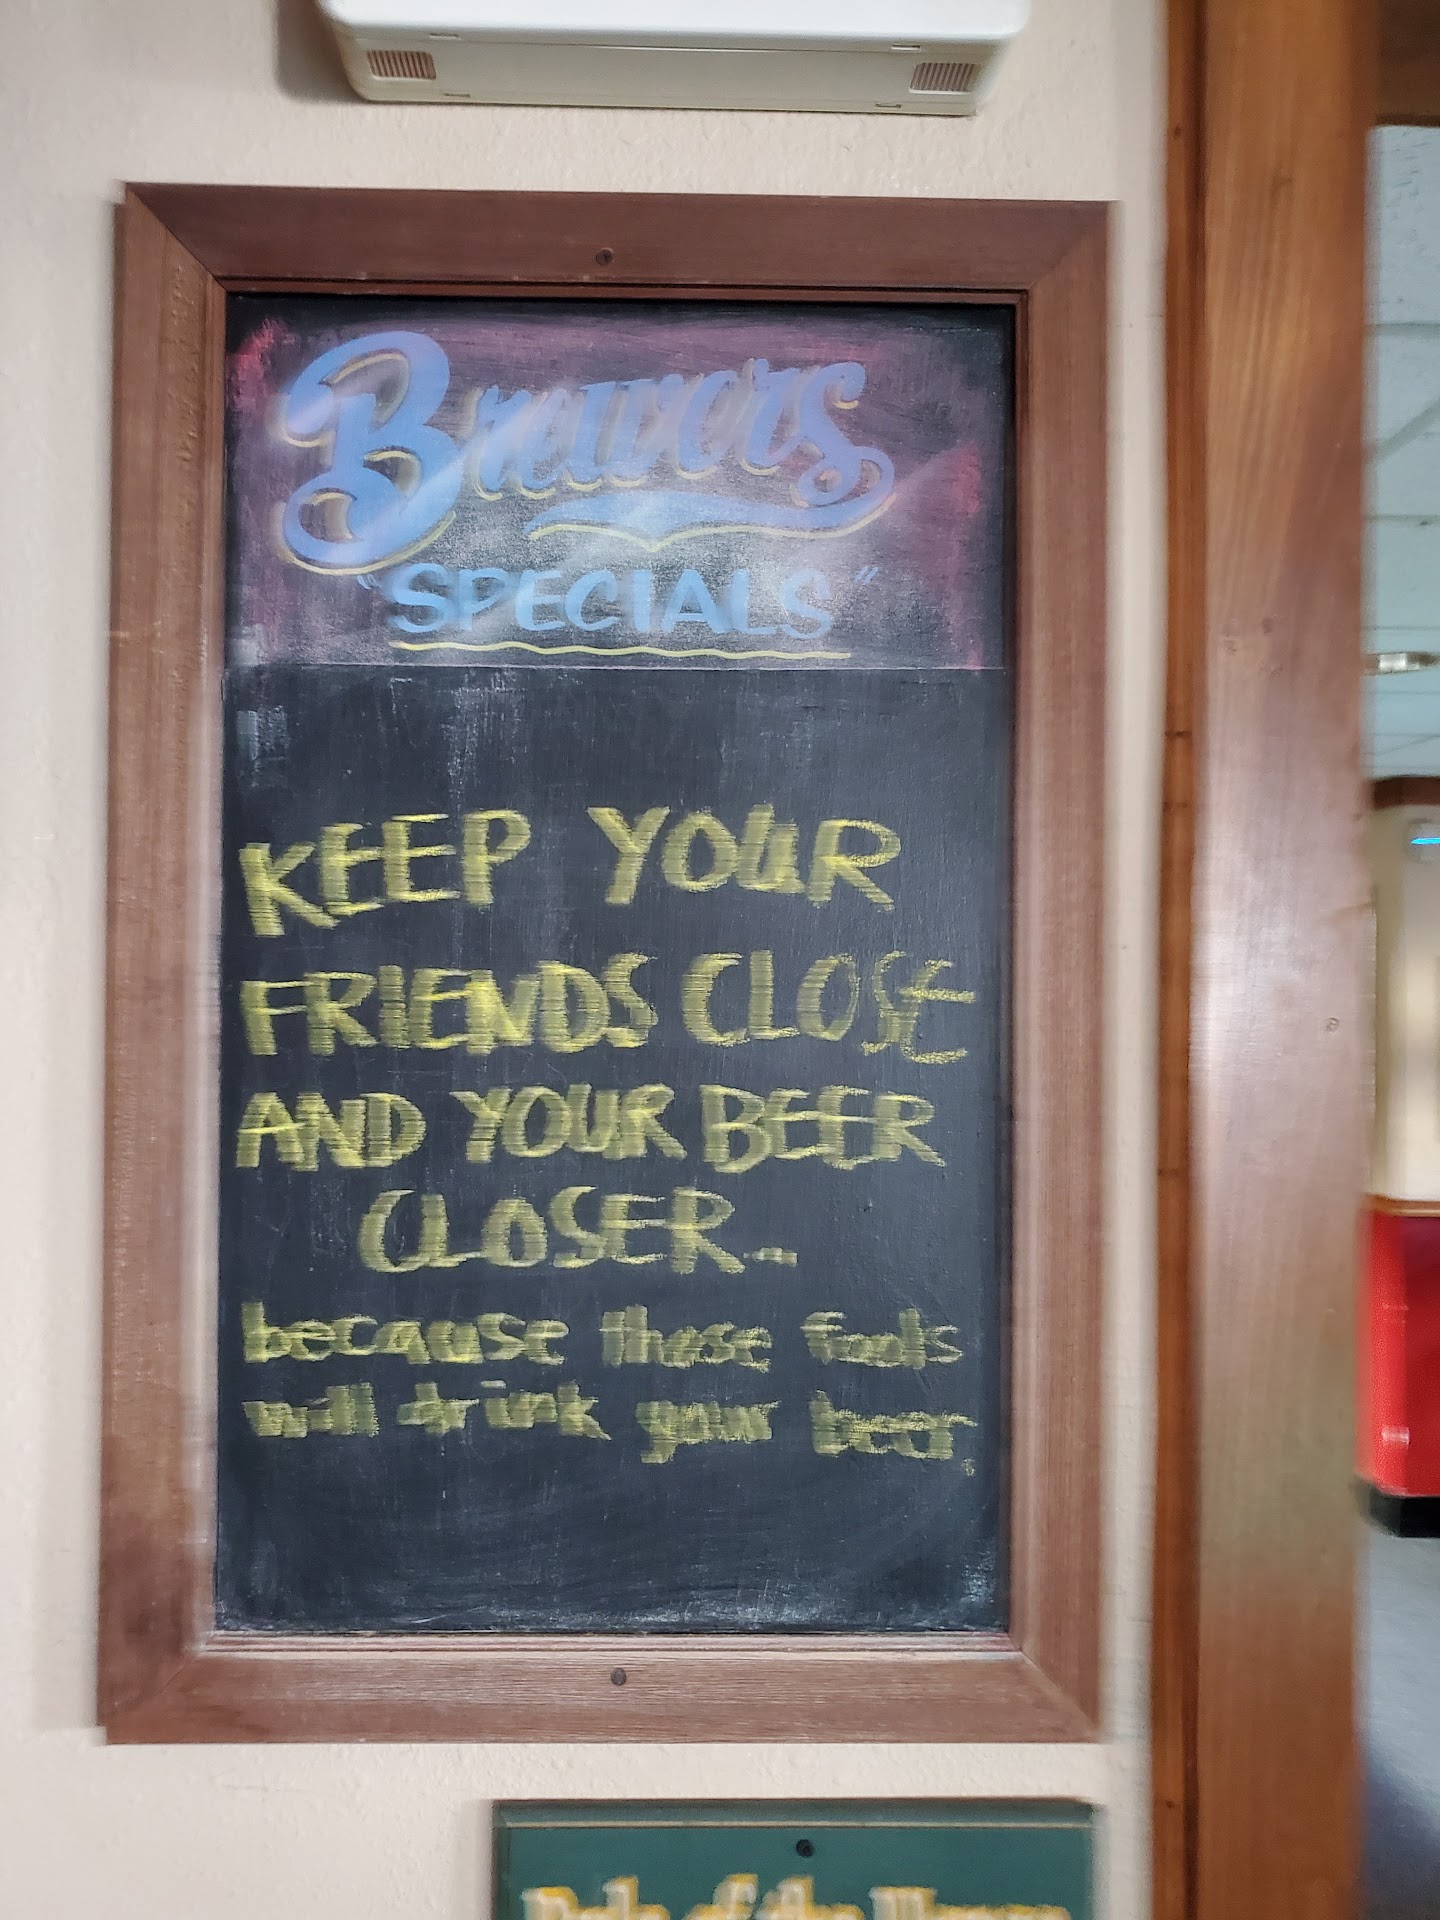 Brewers
"SPECIALS"
KEEP YOUR
FRIENDS CLOSE
AND YOUR BEER
CLOSER...
because those fools
will drink your beer.
Rule of the House